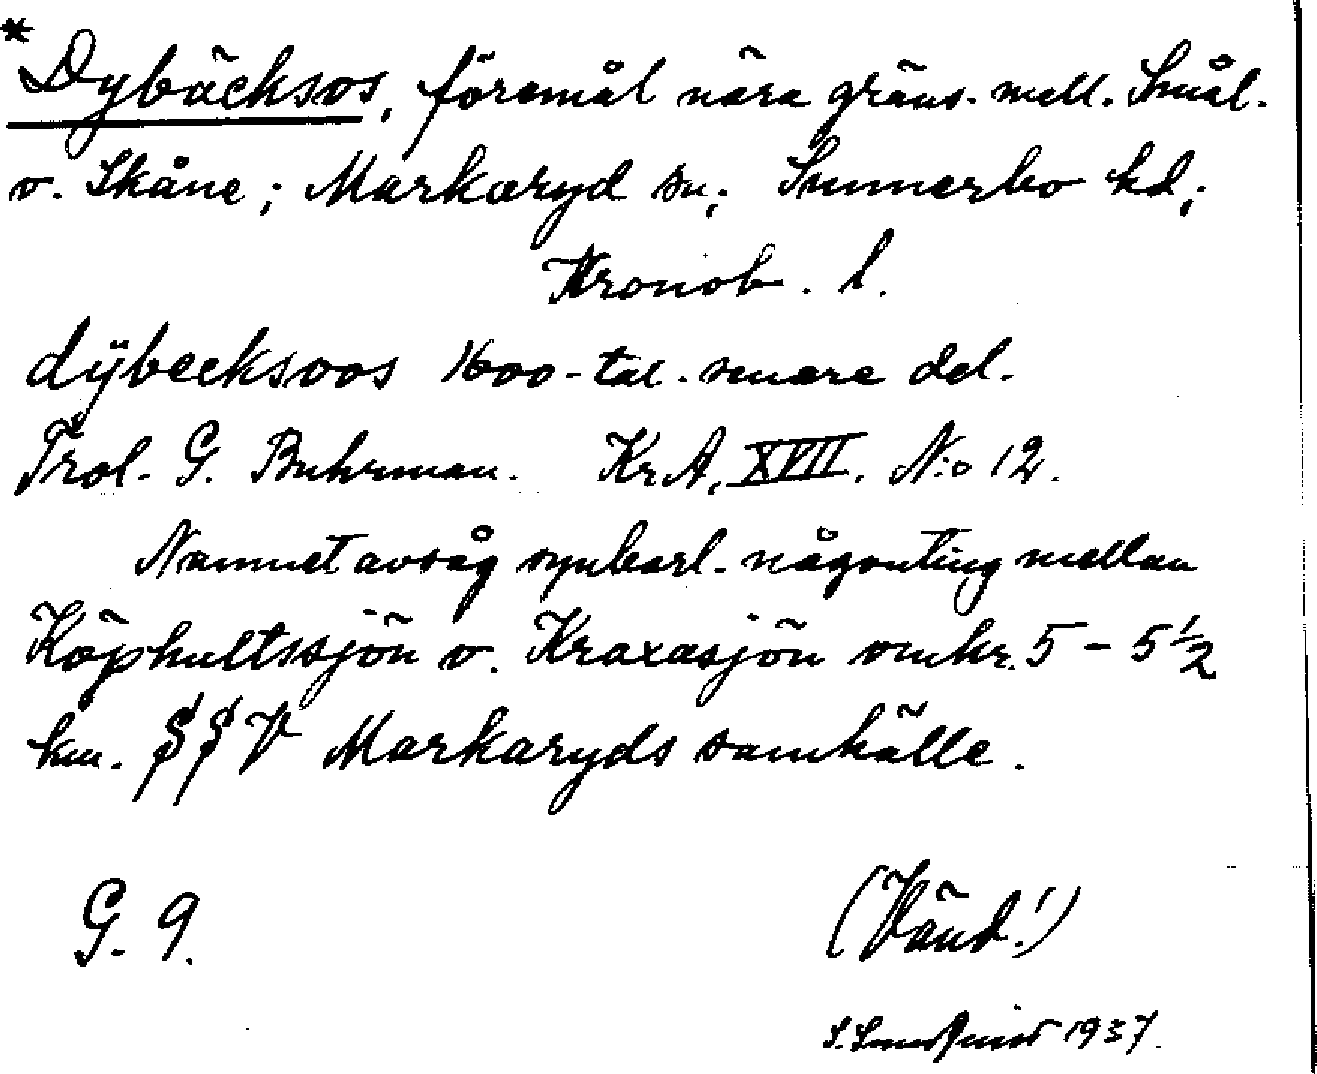 *Dybäcksos, föremål nära gräns. mell. Smål.
o. Skåne; Markaryd sn; Sunnerbo hd;
Kronob. l.
dÿbecksoos 1600-tal. senare del.
Trol. G. Buhrman. Kr.A. XVII. N:o 12.
Namnet avsåg synbarl. någonting mellan
Köphultssjön o. Kraxasjön omkr. 5 - 5 1/2
km. SSV Markaryds samhälle.
G. 9.
(Vänd!)
S. 1937.